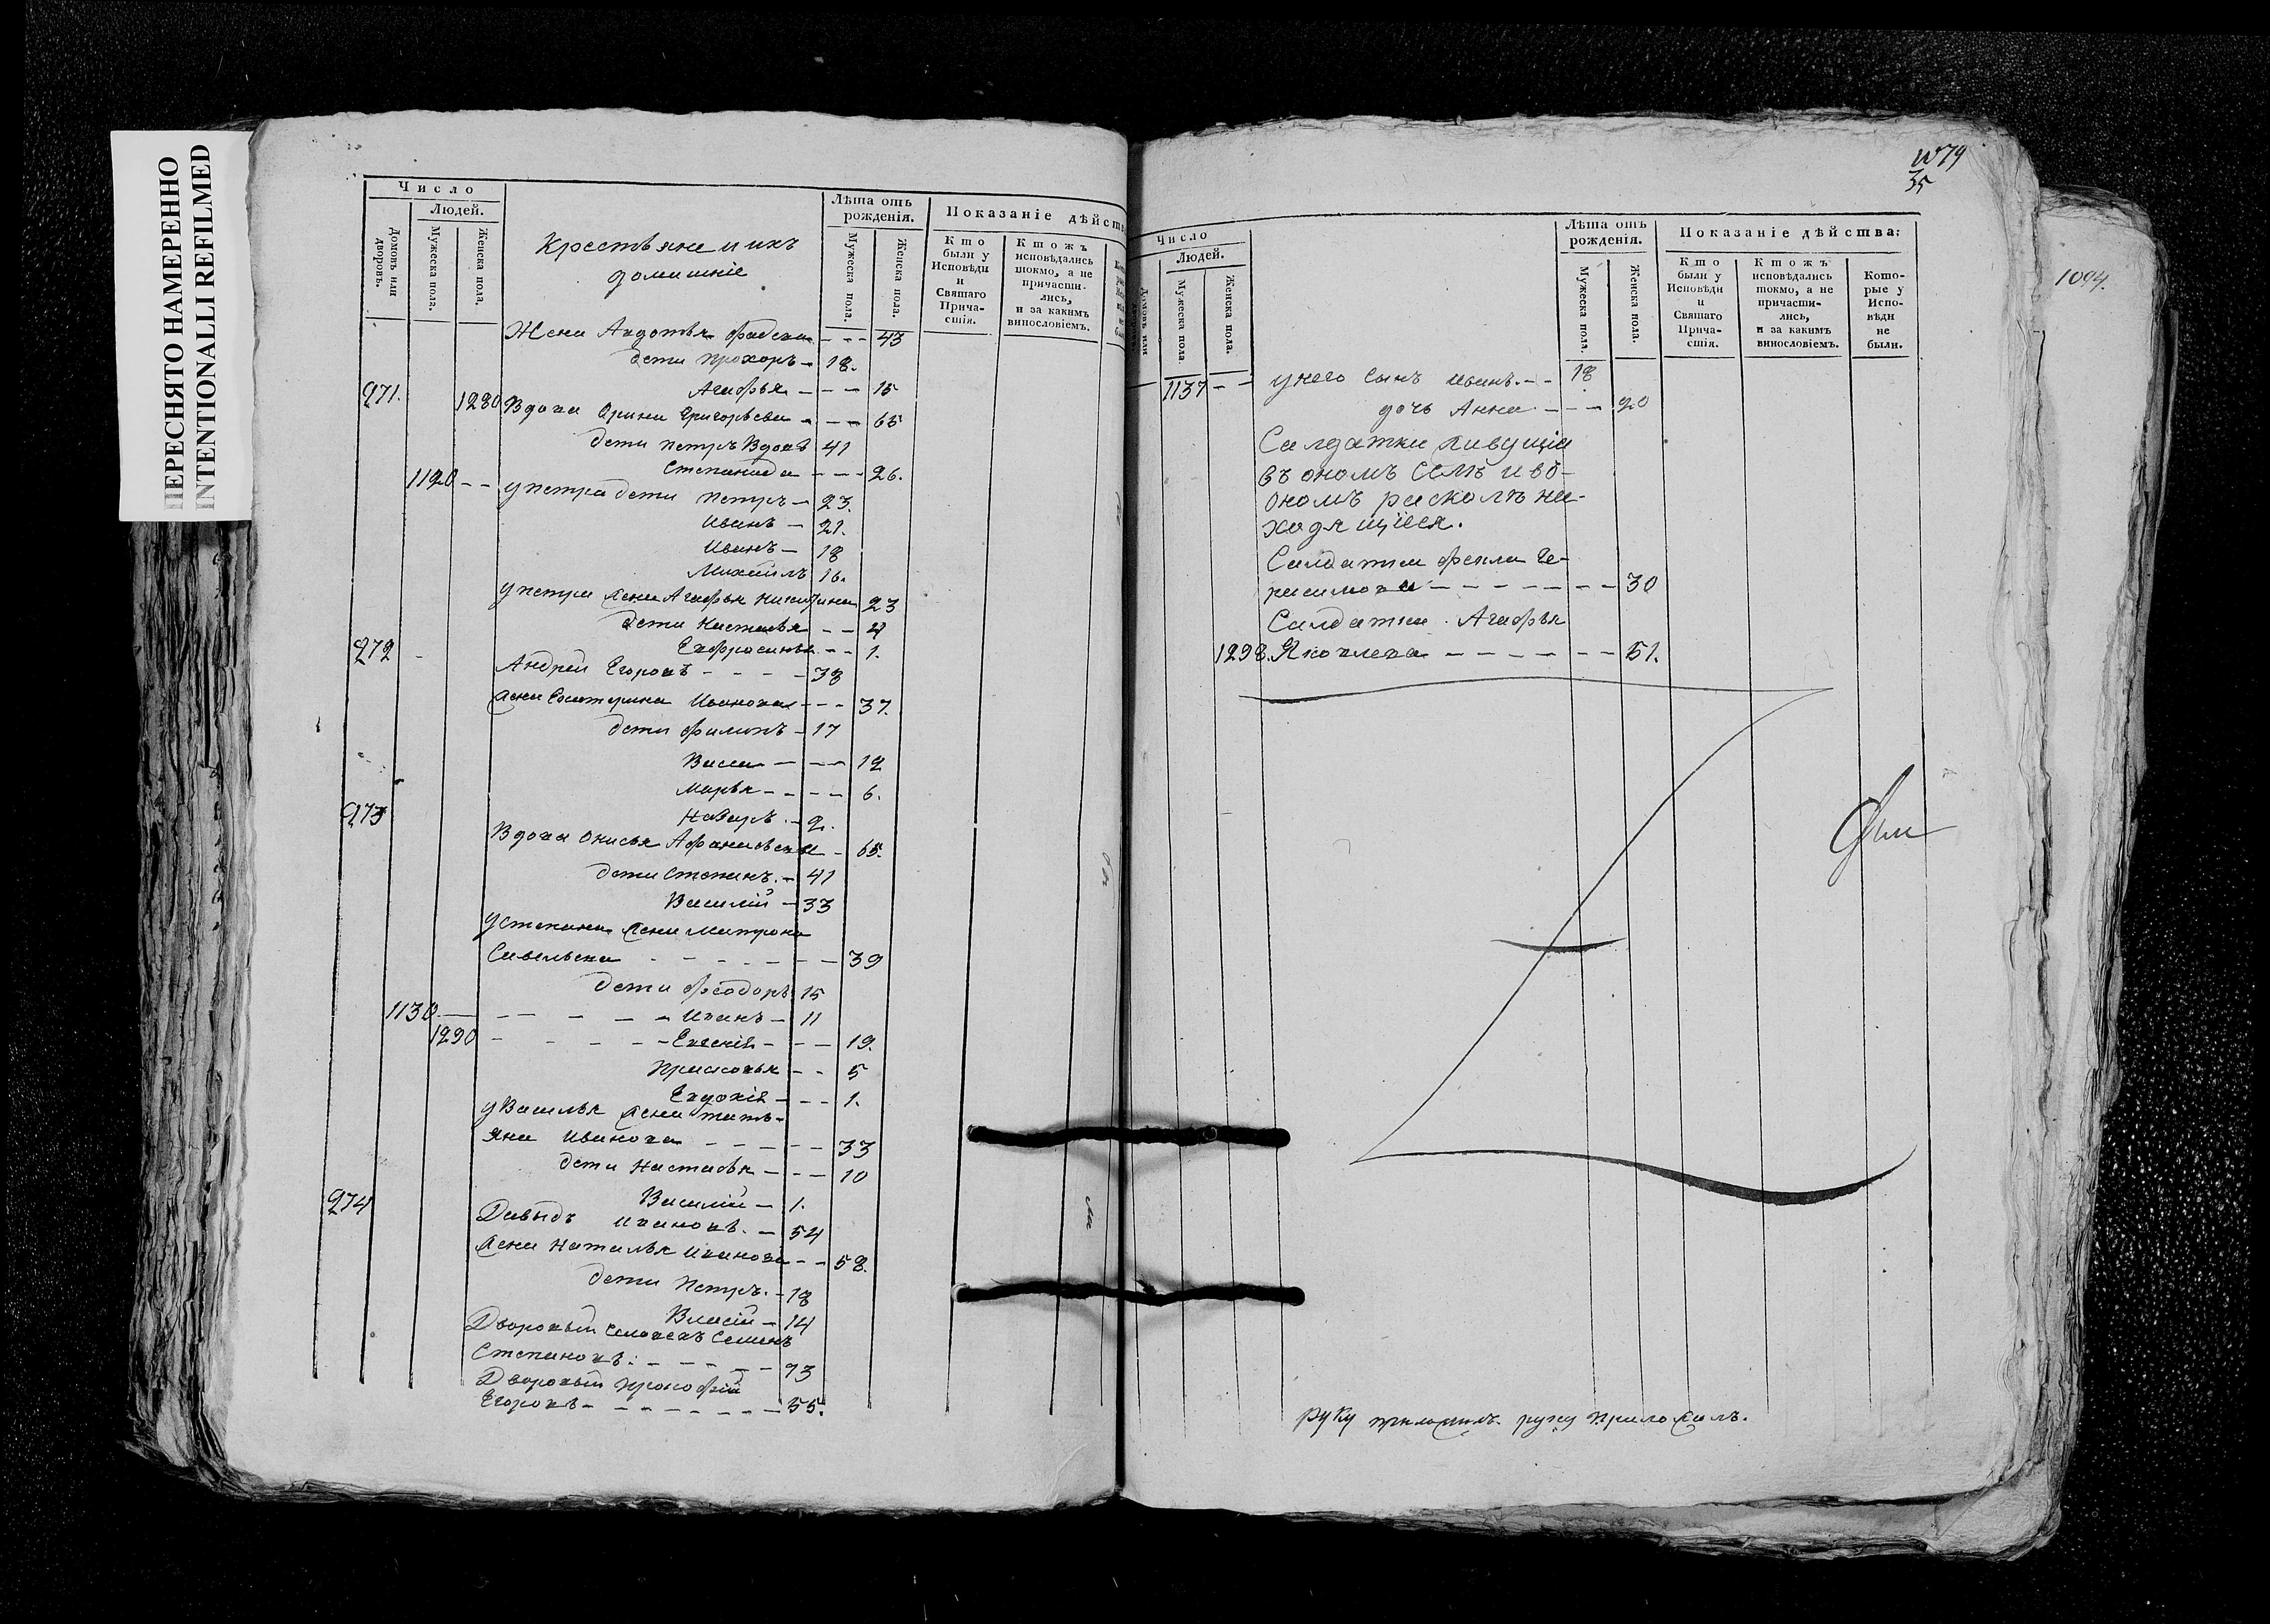 ПЕРЕСНЯТО НАМЕРЕННО
INTENTIONALLI REFILMED
Число
Людей.
Домовъ или дворовъ.
Мужеска пола.
Женска пола.
Крестьяне и ихъ
домашніе
Лѣта отъ рожденія.
Мужеска пола.
Женска пола.
Показаніе дѣйств
Кто были у Исповѣди и Святаго Причастія.
Ктожъ исповѣдались токмо, а не причастились, и за какимъ винословіемъ.
Жена Авдотья - - - 43
Дети Прохоръ - 18.
Агафья - - - 15
971. 1280 Вдова Орина Григорьева - - - 65
Дети Петръ Вдовъ 41
Степанида - - - 26.
1120 - - у Петра дети Петръ - 23.
Иванъ - 21.
Иванъ - 18
Михаилъ 16.
у Петра жена Агафья Никитина 23
Дети Настасья - - 4
Евфросинья - - 1.
972 Андрей Егоровъ - - - - 38
жена Екатерина Иванова - - - 37.
Дети Филипъ - 17
Васса - - - 12
Марья - - - - 6.
973 Назаръ. - 2.
Вдова Онисья - 65.
дети Степанъ. - 41
Василій - 33
у Степана жена Матрона
Савельева - - - - - - - 39
Дети Феодоръ 15
1130 - - - - - - Иванъ - 11
1290 - - - - - Евгенія - - - 19.
Прасковья - - 5
Евдокія - - - 1.
у Василья жена Тать-
яна Иванова - - - - - 33
дети Настасья - - - 10
Василій - 1.
974 Давыдъ Ивановъ. - 54
жена Наталья Иванова - - 58.
дети Петръ. - 18
Власій - 14
Дворовый человекъ Семенъ
Степановъ. - - - - - 73
Дворовый Прокофій
Егоровъ - - - - - - - 55.
1079
35
1094.
Число
Людей.
Домовъ или
Мужеска пола.
Женска пола.
Лѣта отъ рожденія.
Мужеска пола.
Женска пола.
Показаніе дѣйства:
Кто были у Исповѣди и Святаго Причастія.
Ктожъ исповѣдались токмо, а не причастились, и за какимъ винословіемъ.
Которые у Исповѣди не были.
1137 - - у него сынъ Иванъ. - - 18
дочь Анна - - - 20
Салдатки живущіа
въ ономъ селѣ и во-
ономъ расколѣ на-
ходящіеся.
Салдатка Фекла Ге-
расимова - - - - - - - 30
Салдатка Агафья
1298. Яковлева - - - - - - - 51.
руку приложилъ. руку приложилъ.